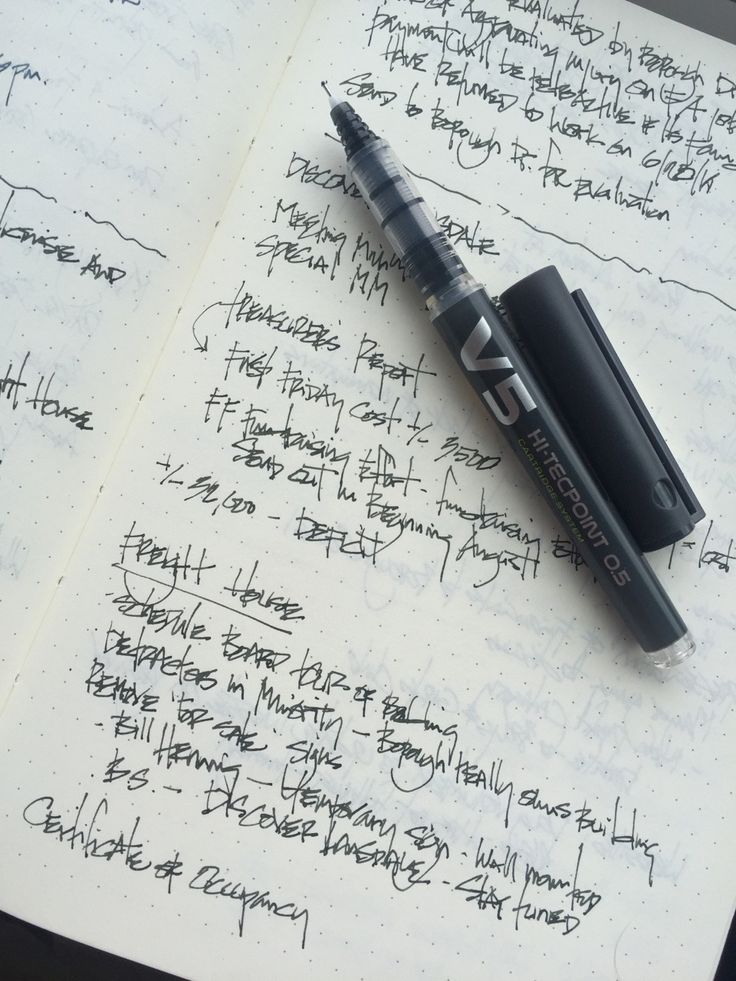 6pm.
AND
HT HOUSE
EVALUATED by BOROUGH
payment will be retroactive
HAVE RETURNED to WORK ON
SEND to BOROUGH Dr. for EVALUATION
DISCOVE DATE
MEETING MINU
SPECIAL MM
TREASURER'S REPORT
FIRST FRIDAY COST +/- 3500
FF Fundraising Effort - fundraising
SEND OUT IN Beginning August
- DEFICIT
FREIGHT HOUSE
SCHEDULE BOARD TOUR OF BUILDING
DETRACTORS IN MINORITY - BOROUGH REALLY OWNS BUILDING
REMOVE 'FOR SALE' SIGNS
- Bill HENNING - TEMPORARY SIGN - WALL MOUNTED
BS - DISCOVER LANSDALE - STAY TUNED
Certificate of Occupancy
V5
HI-TECPOINT 0.5
CARTRIDGE SYSTEM